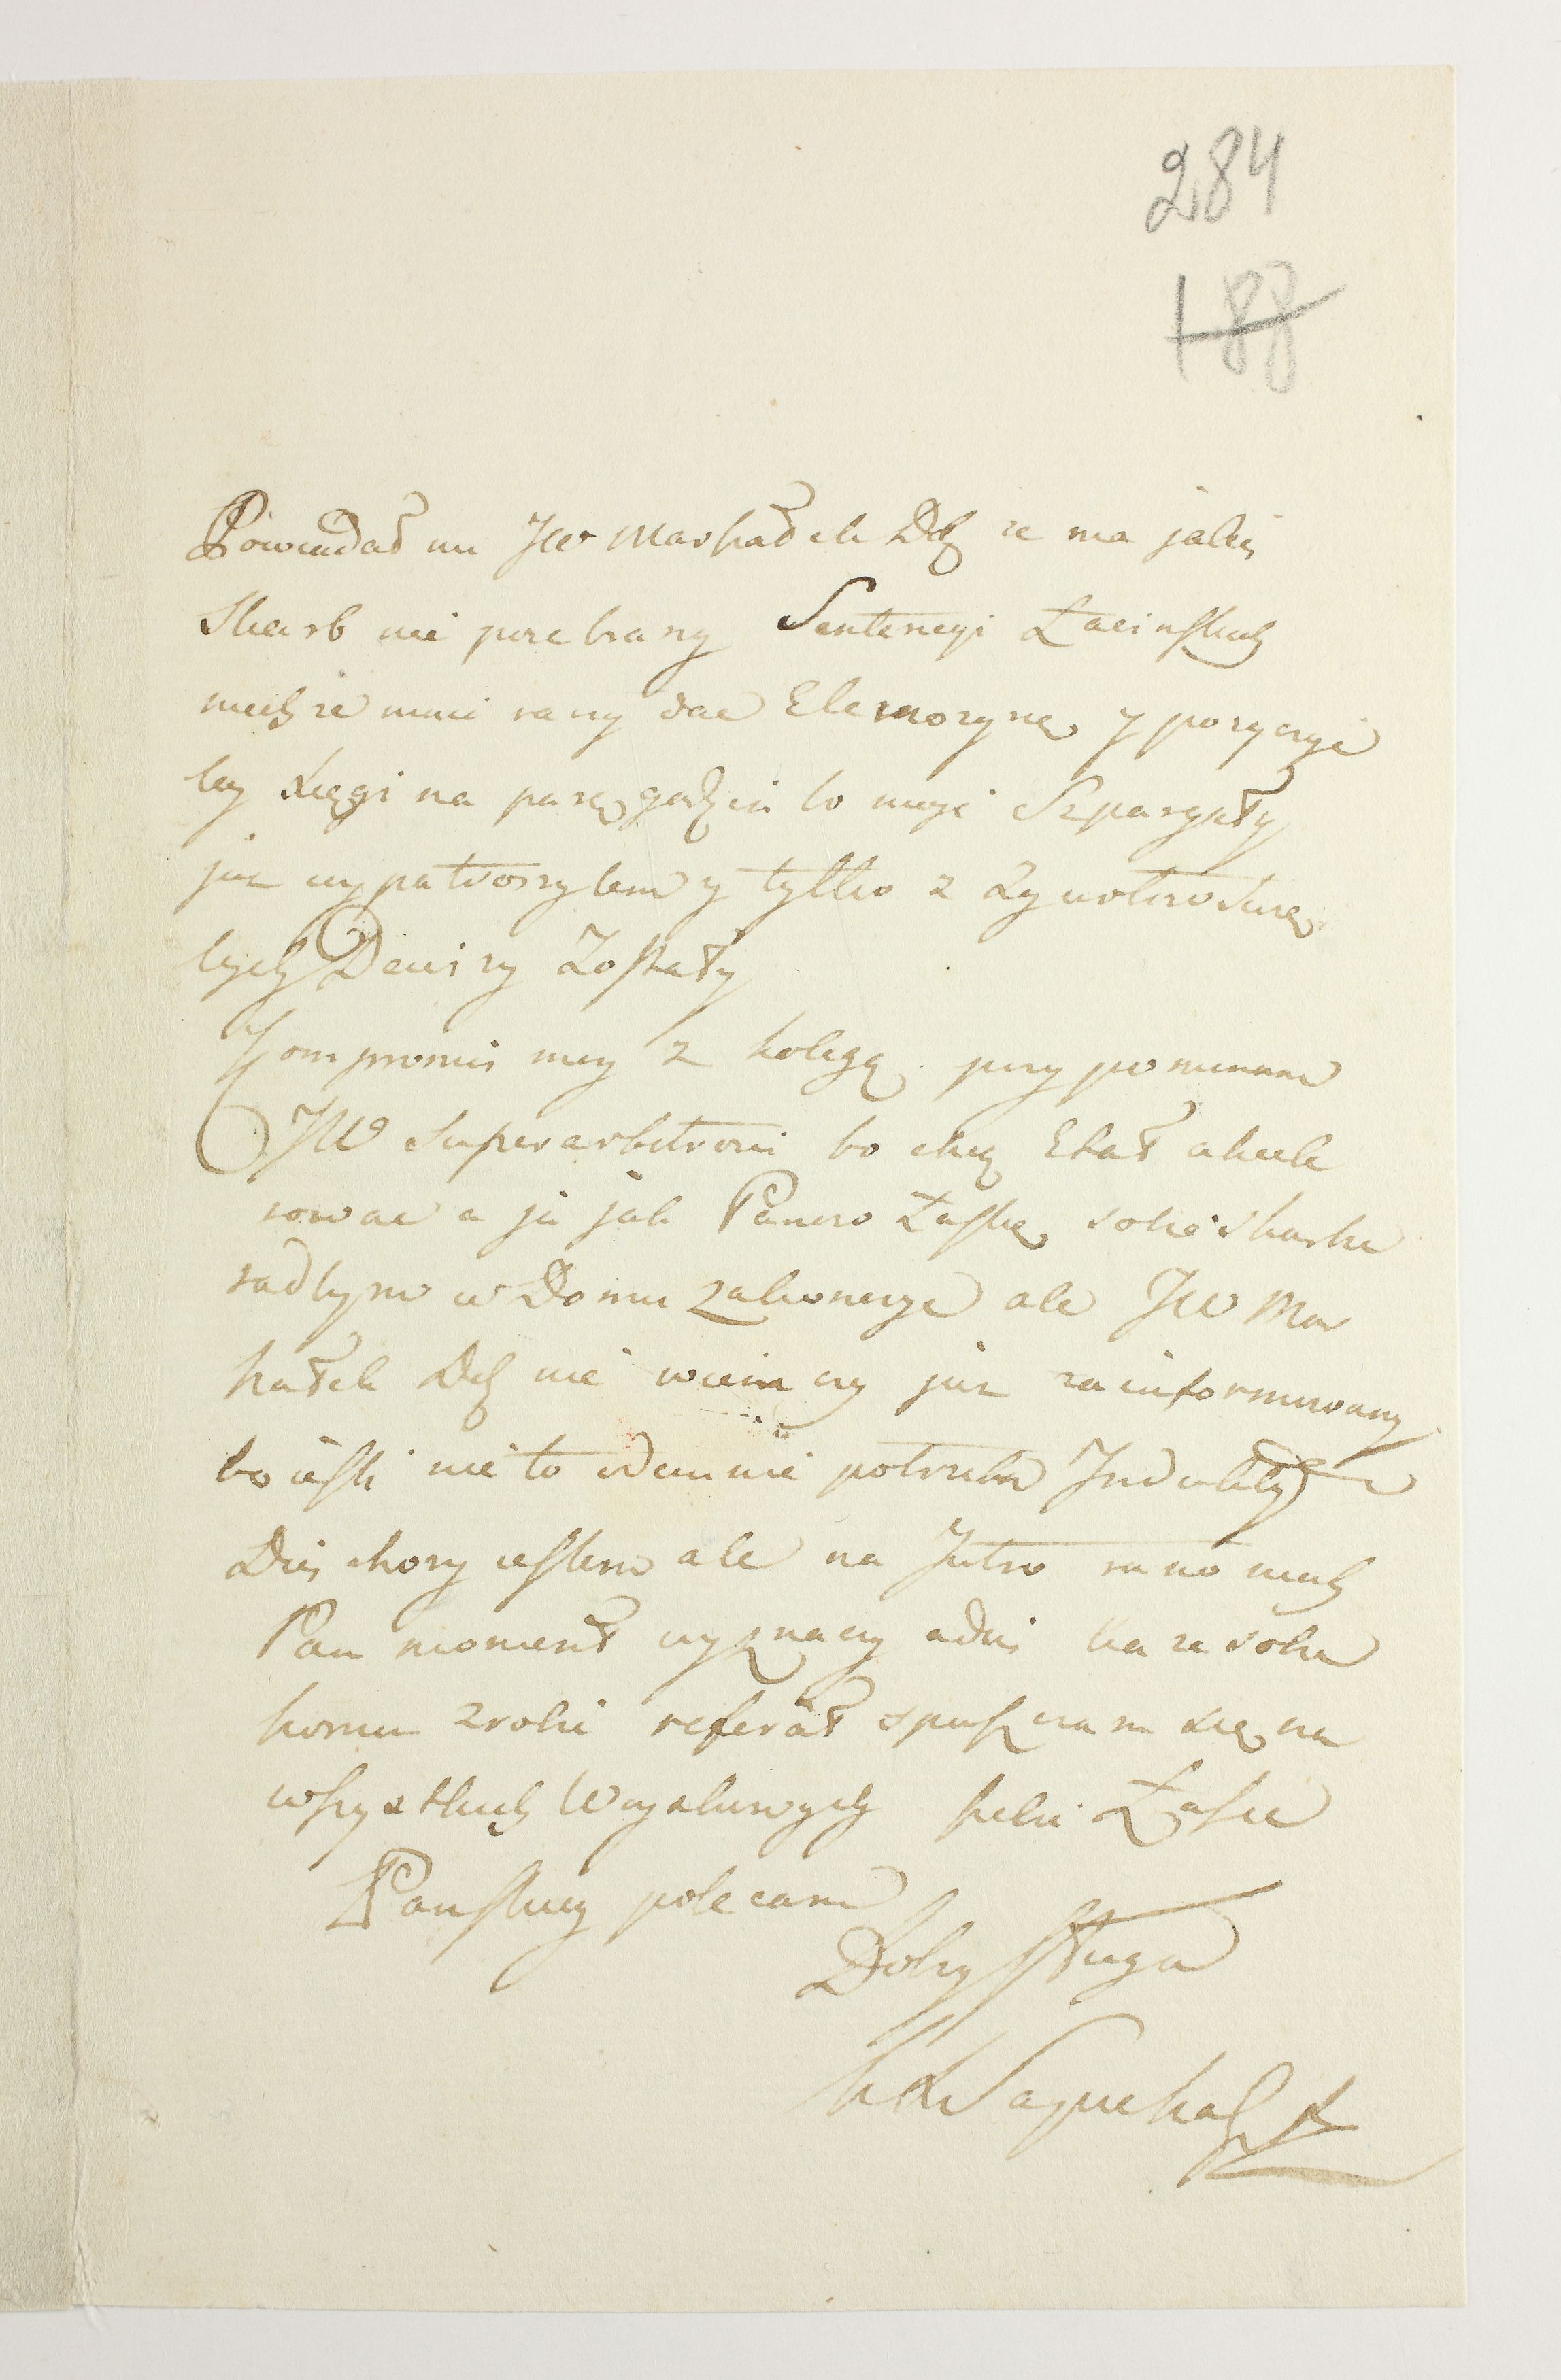 284
188
Powiadał mi JW Marszałek Dob ze ma jakiś
Skarb nie przebrany Sentencyi Łacinskich
niechze mnie raczy dac Elemozynę y pozyczyć
tey Xięgi na parę godzin bo moje Szpargały
juz wypatroszylem y tylko z Zywotow Swię
tych Dewizy Zostały
Kompromis moy z kolegą przypominam
JW Superarbitrowi bo chcą Etat
a ja jak Panow Łaskę sobie skarbi
radbym w Domu ale JW Mar
szałek Dob nie wiem czy juz zainformowany
bo iesli nie to odemnie potrzeba Indukty
Dziś chory iestem ale na Jutro rano niech
Pan moment wyznaczy a dziś kaze sobie
komu zrobi referat spuszczam się na
wszystkich y siebie Łasce
Panskiey polecam
Dobry Sługa
K N Sapieha